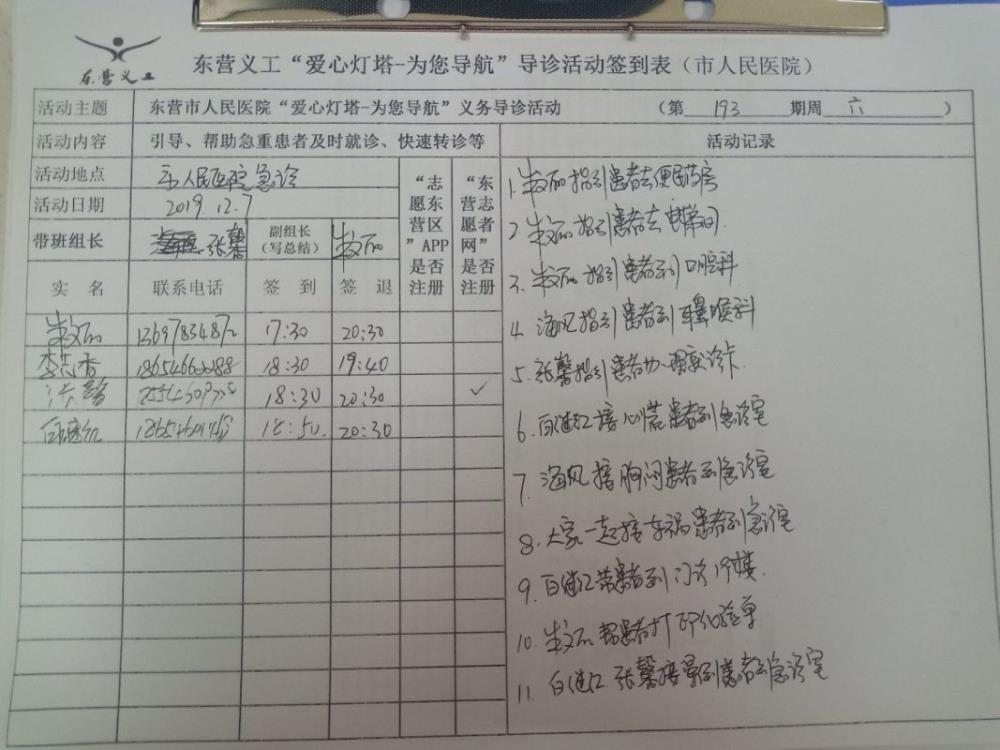 东营义工
东营义工“爱心灯塔-为您导航”导诊活动签到表（市人民医院）
活动主题 东营市人民医院“爱心灯塔-为您导航”义务导诊活动 （第 193 期周 六 ）
活动内容 引导、帮助急重患者及时就诊、快速转诊等 活动记录
活动地点 市人民医院急诊
活动日期 2019.12.7
带班组长 张馨 副组长（写总结）
“志愿东营区”APP是否注册
“东营志愿者网”是否注册
实 名 联系电话 签 到 签 退
17:30 20:30
18:30 19:40
18:30 20:30 ✓
18:50. 20:30
1. 指引患者去便民药房
2. 指引患者去
3. 指引患者到口腔科
4. 海风指引患者到耳鼻喉科
5. 张馨指引患者办 诊卡
6. 白继江接心慌患者到急诊室
7. 海风接胸闷患者到急诊室
8. 大家一起接车祸患者到急诊室
9. 白继江带患者到门诊 楼.
10. 帮患者打印化验单
11. 白继江 张馨接晕倒患者到急诊室